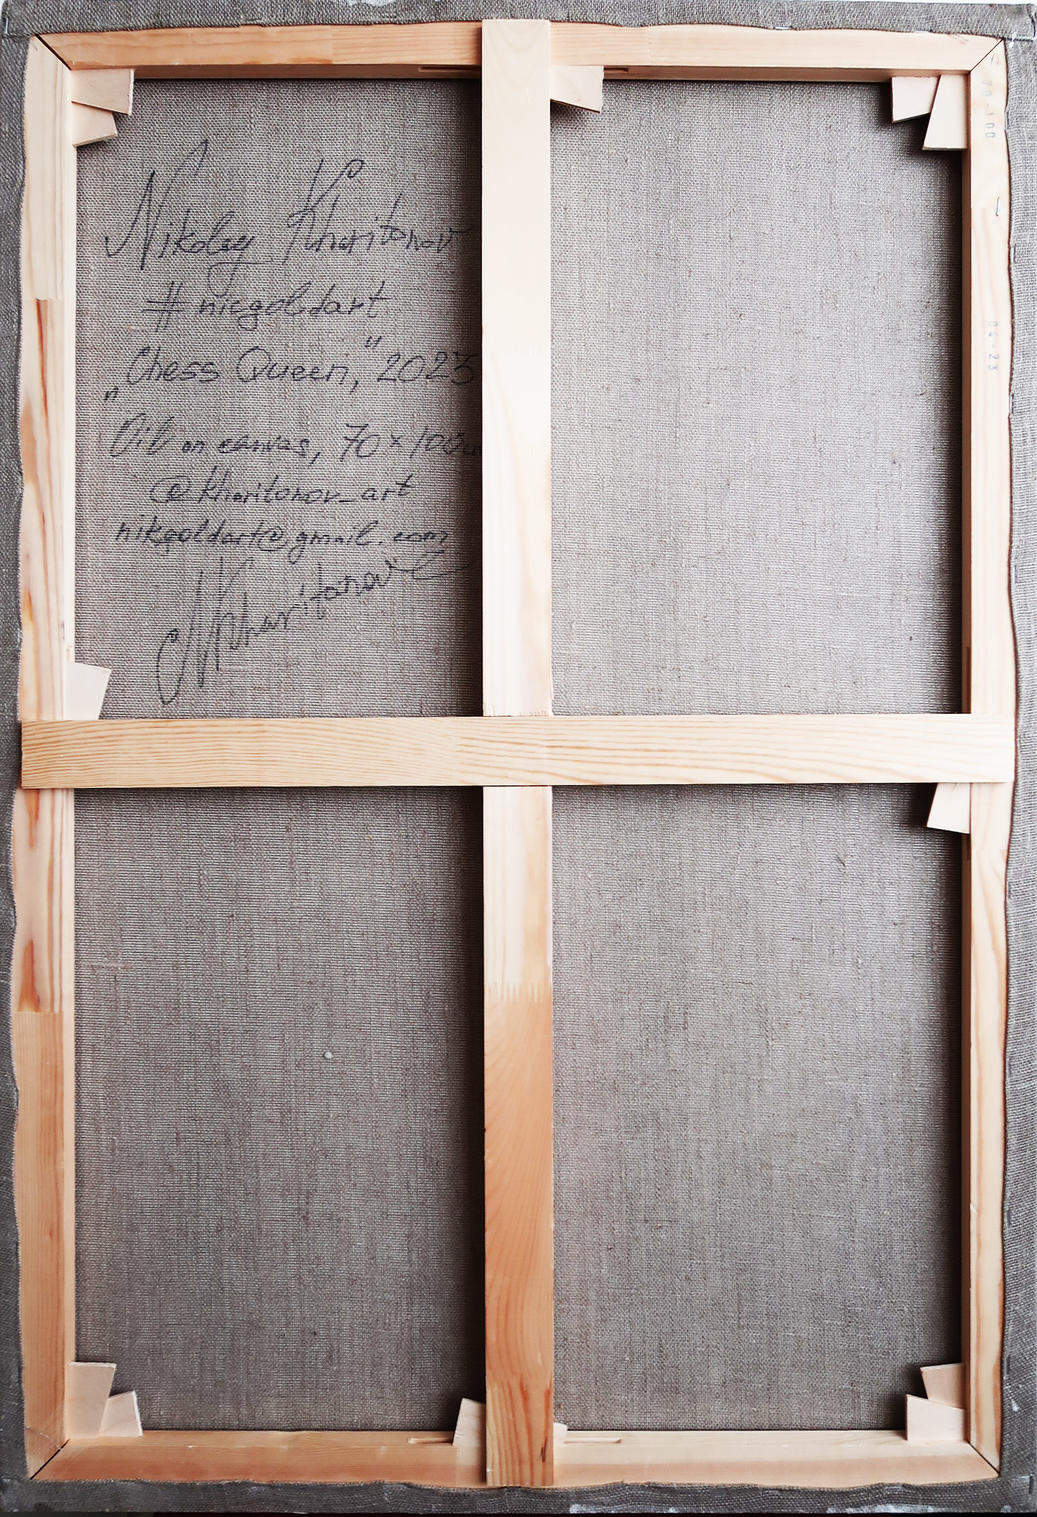 Nikolay Kharitonov
#nicgoldart
„Chess Queen," 2023
Oil on canvas, 70×100cm
@kharitonov_art
nikgoldart@gmail.com
NKharitonov
70-100
04-23